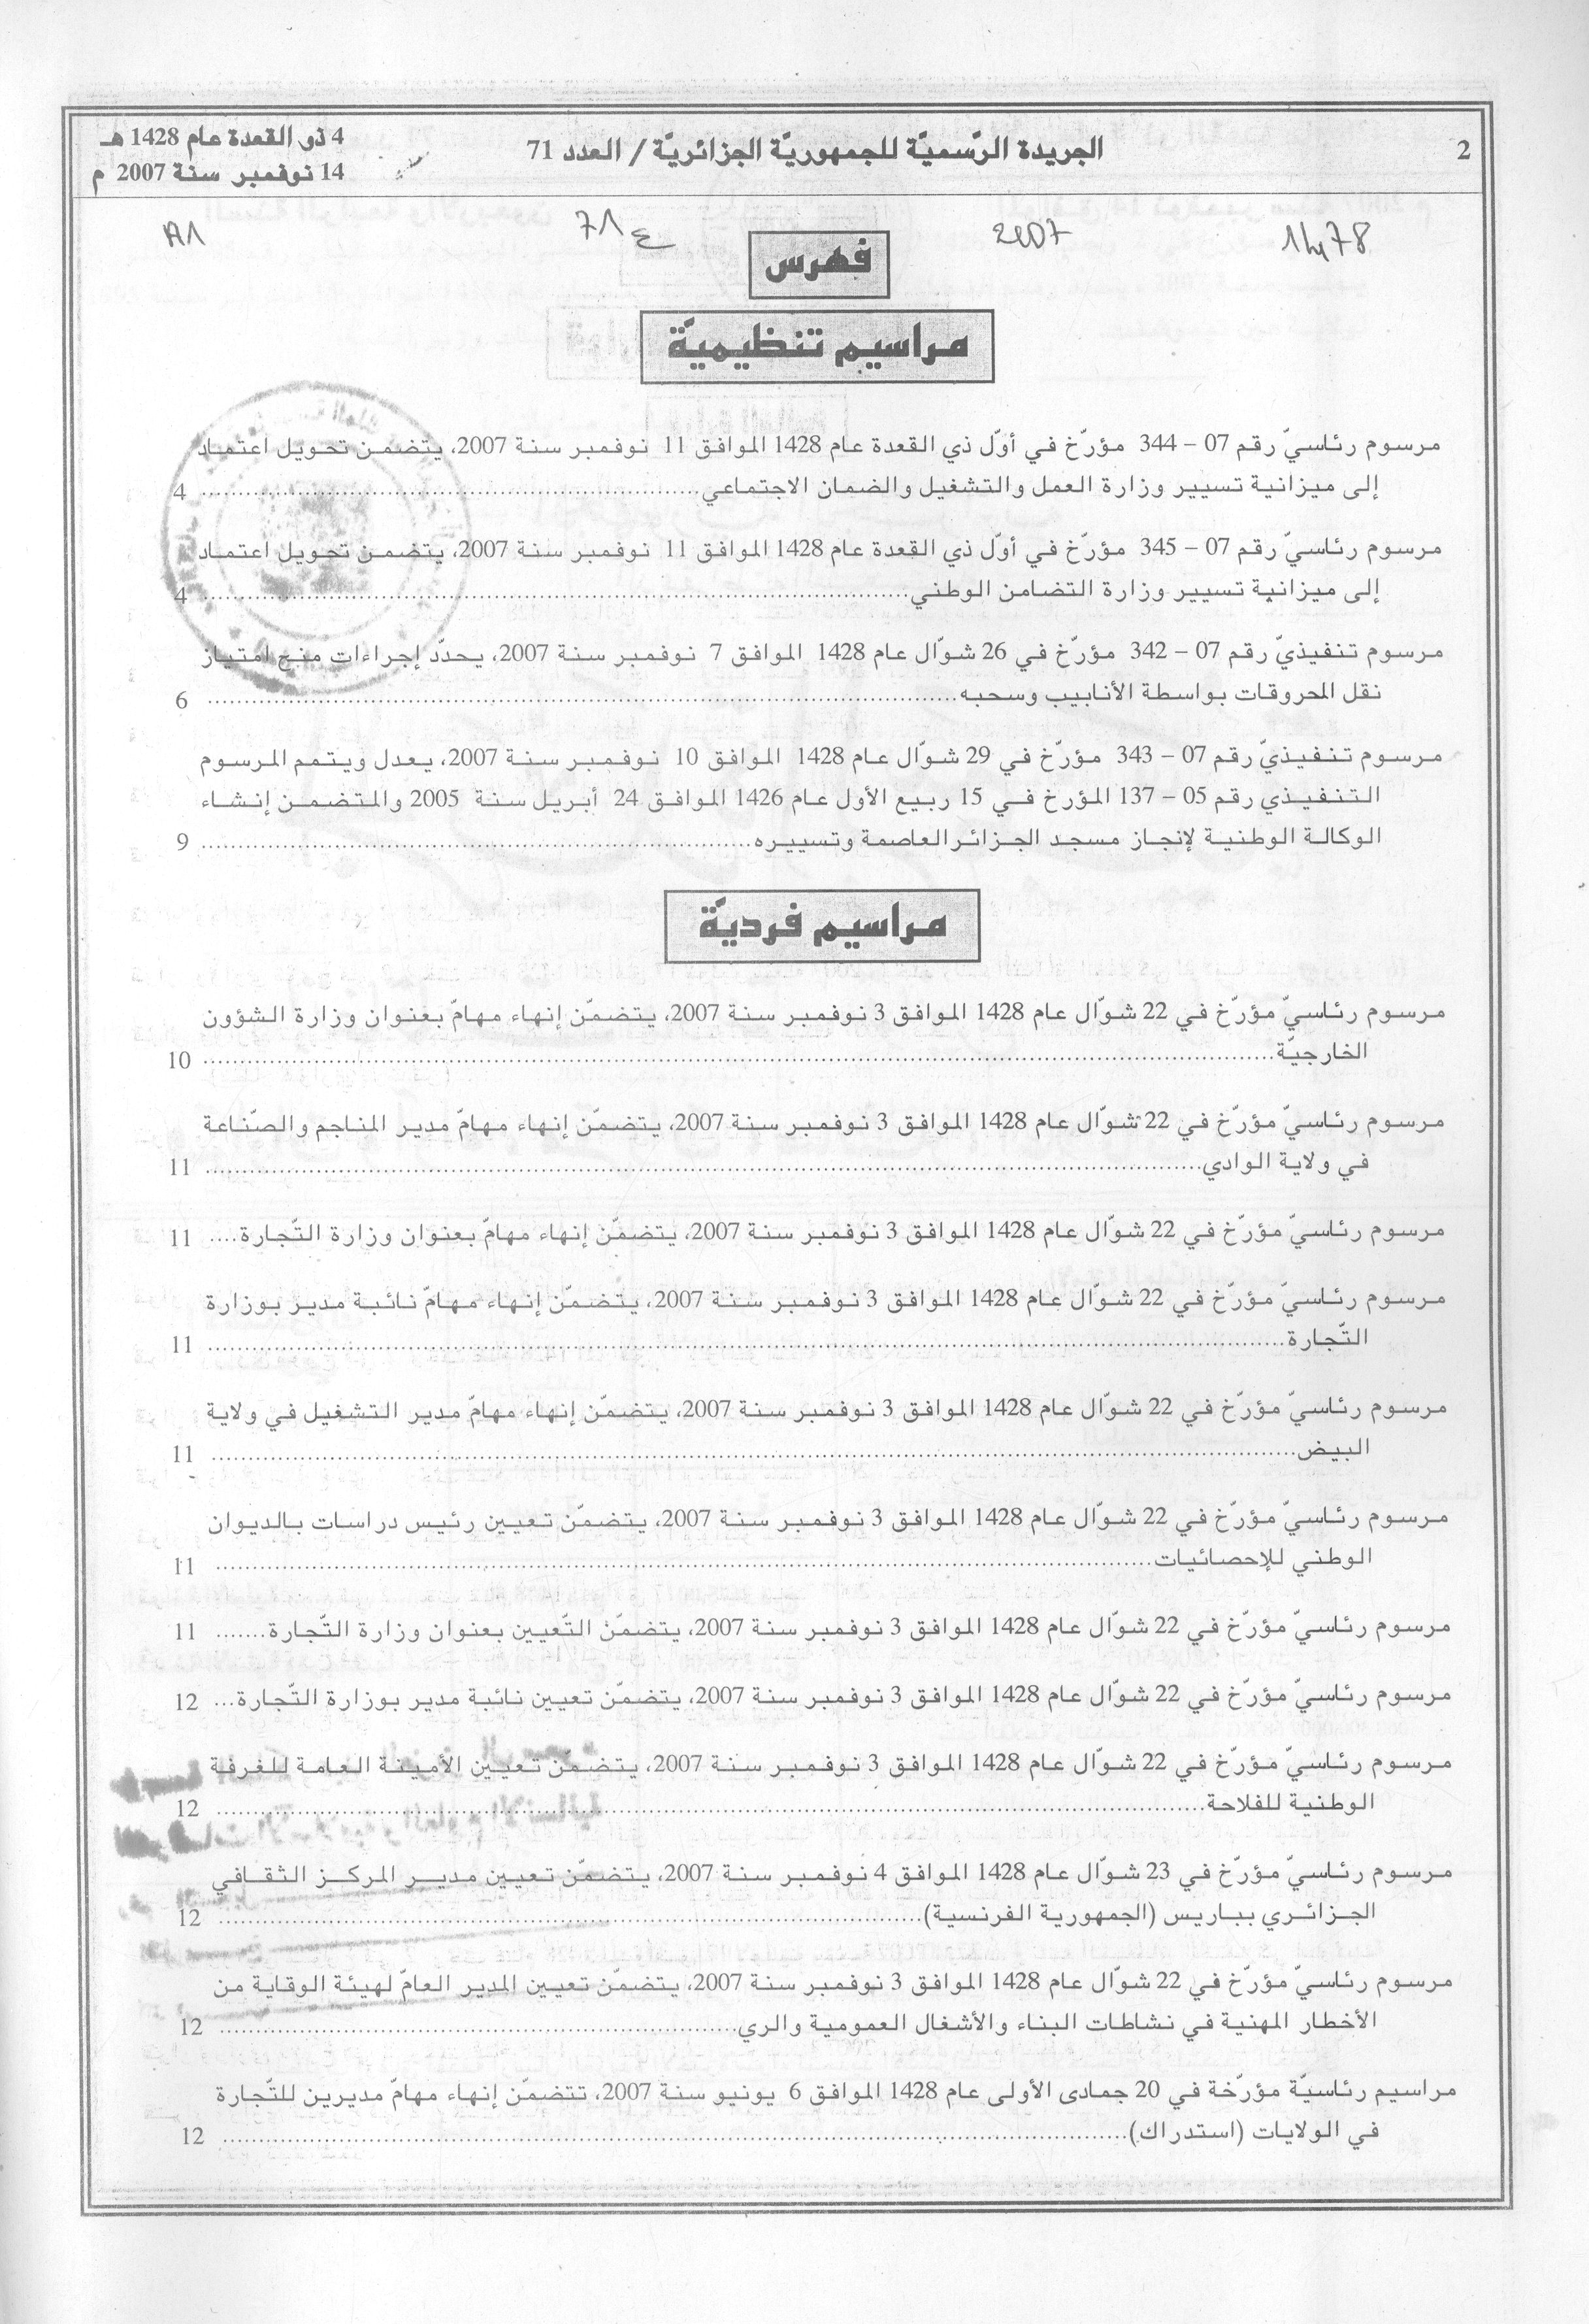 2
الجريدة الرّسميّة للجمهوريّة الجزائريّة / العدد 71
4 ذو القعدة عام 1428 هـ
14 نوفمبر سنة 2007 م
1478
2007
71 ع
A1
فهرس
مراسيم تنظيميّة
مرسوم رئاسيّ رقم 07 – 344 مؤرّخ في أوّل ذي القعدة عام 1428 الموافق 11 نوفمبر سنة 2007، يتضمن تحويل اعتماد
إلى ميزانية تسيير وزارة العمل والتشغيل والضمان الاجتماعي............ 4
مرسوم رئاسيّ رقم 07 – 345 مؤرّخ في أوّل ذي القعدة عام 1428 الموافق 11 نوفمبر سنة 2007، يتضمن تحويل اعتماد
إلى ميزانية تسيير وزارة التضامن الوطني............ 4
مرسوم تنفيذيّ رقم 07 – 342 مؤرّخ في 26 شوّال عام 1428 الموافق 7 نوفمبر سنة 2007، يحدّد إجراءات منح امتياز
نقل المحروقات بواسطة الأنابيب وسحبه............ 6
مرسوم تنفيذيّ رقم 07 – 343 مؤرّخ في 29 شوّال عام 1428 الموافق 10 نوفمبر سنة 2007، يعدل ويتمم المرسوم
التنفيذي رقم 05 – 137 المؤرخ في 15 ربيع الأول عام 1426 الموافق 24 أبريل سنة 2005 والمتضمن إنشاء
الوكالة الوطنية لإنجاز مسجد الجزائر العاصمة وتسييره............ 9
مراسيم فرديّة
مرسوم رئاسيّ مؤرّخ في 22 شوّال عام 1428 الموافق 3 نوفمبر سنة 2007، يتضمّن إنهاء مهامّ بعنوان وزارة الشؤون
الخارجيّة............ 10
مرسوم رئاسيّ مؤرّخ في 22 شوّال عام 1428 الموافق 3 نوفمبر سنة 2007، يتضمّن إنهاء مهامّ مدير المناجم والصّناعة
في ولاية الوادي............ 11
مرسوم رئاسيّ مؤرّخ في 22 شوّال عام 1428 الموافق 3 نوفمبر سنة 2007، يتضمّن إنهاء مهامّ بعنوان وزارة التّجارة.... 11
مرسوم رئاسيّ مؤرّخ في 22 شوّال عام 1428 الموافق 3 نوفمبر سنة 2007، يتضمّن إنهاء مهامّ نائبة مدير بوزارة
التّجارة............ 11
مرسوم رئاسيّ مؤرّخ في 22 شوّال عام 1428 الموافق 3 نوفمبر سنة 2007، يتضمّن إنهاء مهامّ مدير التشغيل في ولاية
البيض............ 11
مرسوم رئاسيّ مؤرّخ في 22 شوّال عام 1428 الموافق 3 نوفمبر سنة 2007، يتضمّن تعيين رئيس دراسات بالديوان
الوطني للإحصائيات............ 11
مرسوم رئاسيّ مؤرّخ في 22 شوّال عام 1428 الموافق 3 نوفمبر سنة 2007، يتضمّن التّعيين بعنوان وزارة التّجارة....... 11
مرسوم رئاسيّ مؤرّخ في 22 شوّال عام 1428 الموافق 3 نوفمبر سنة 2007، يتضمّن تعيين نائبة مدير بوزارة التّجارة... 12
مرسوم رئاسيّ مؤرّخ في 22 شوّال عام 1428 الموافق 3 نوفمبر سنة 2007، يتضمّن تعيين الأمينة العامة للغرفة
الوطنية للفلاحة............ 12
مرسوم رئاسيّ مؤرّخ في 23 شوّال عام 1428 الموافق 4 نوفمبر سنة 2007، يتضمّن تعيين مدير المركز الثقافي
الجزائري بباريس (الجمهورية الفرنسية)............ 12
مرسوم رئاسيّ مؤرّخ في 22 شوّال عام 1428 الموافق 3 نوفمبر سنة 2007، يتضمّن تعيين المدير العامّ لهيئة الوقاية من
الأخطار المهنية في نشاطات البناء والأشغال العمومية والري............ 12
مراسيم رئاسيّة مؤرّخة في 20 جمادى الأولى عام 1428 الموافق 6 يونيو سنة 2007، تتضمّن إنهاء مهامّ مديرين للتّجارة
في الولايات (استدراك)............ 12